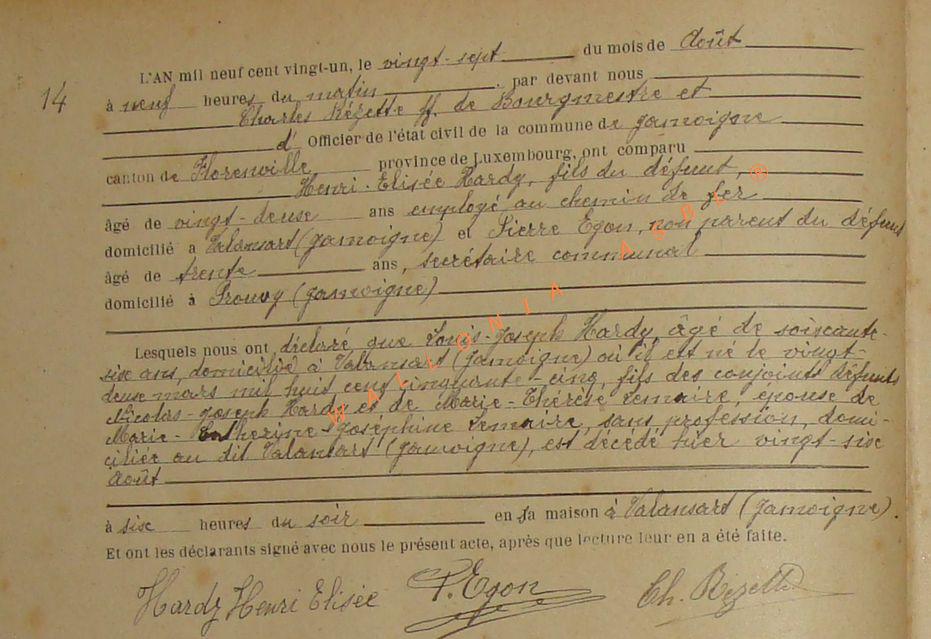 L'AN mil neuf cent vingt-un, le vingt-sept du mois de Août
14
à neuf heures du matin, par devant nous
Charles Rézette ff. de Bourgmestre et
d' Officier de l'état civil de la commune de Jamoigne
canton de Florenville province de Luxembourg, ont comparu
Henri-Elisée Hardy, fils du défunt,
âgé de vingt-deux ans employé au chemin de fer
domicilié à Valansart (Jamoigne) et Pierre Egon, non parent du défunt
âgé de trente ans, secrétaire communal
domicilié à Prouvy (Jamoigne)
Lesquels nous ont déclaré que Louis-Joseph Hardy, âgé de soixante-
six ans, domicilié à Valansart (Jamoigne) où il est né le vingt-
deux mars mil huit cent cinquante-cinq, fils des conjoints défunts
Nicolas-Joseph Hardy et de Marie-Thérèse Lemaire, époux de
Marie-Catherine-Joséphine Lemaire, sans profession, domi-
ciliée au dit Valansart (Jamoigne), est décédé hier vingt-six
août
à six heures du soir en sa maison à Valansart (Jamoigne).
Et ont les déclarants signé avec nous le présent acte, après que lecture leur en a été faite.
Hardy Henri Elisée P. Egon Ch. Rezette
WALLONIA ASBL ®